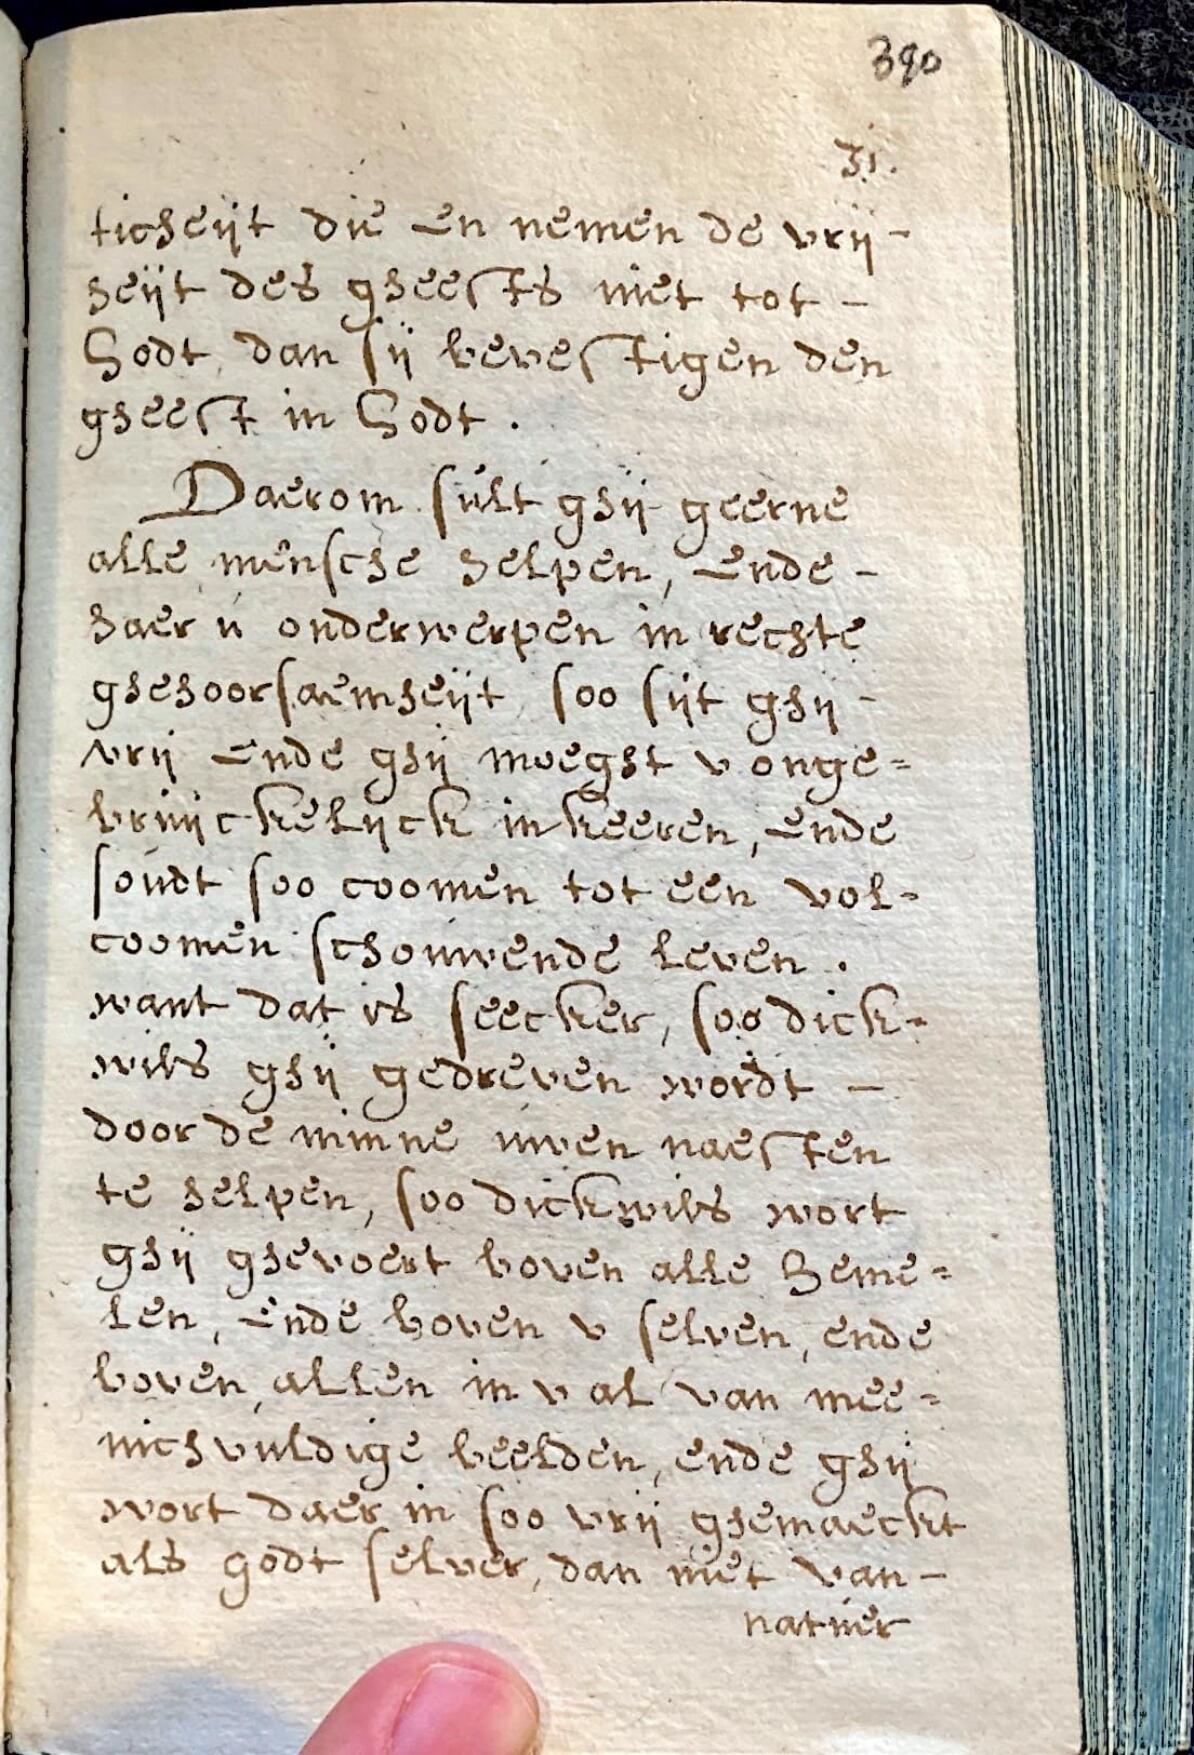 390
31.
ticheijt die en nemen de vrij-
heijt des gheests niet tot -
Godt, dan sij bevestigen den
gheest in Godt.
Daerom sult ghij geerne
alle mensche helpen, ende -
haer u onderwerpen in rechte
ghehoorsaemheijt, soo sijt ghij -
vrij ende ghij moeght v onge=
bruijckelijck inkeeren, ende
soudt soo coomen tot een vol=
coomen schouwende leven.
want dat is seecker, soo dick=
wils ghij gedreven wordt -
door de minne uwen naesten
te helpen, soo dickwils wort
ghij ghevoert boven alle heme=
len, ende boven v selven, ende
boven allen in val van mee=
nichvuldige beelden, ende ghij
wort daer in soo vrij ghemaeckt
als godt selver, dan niet van -
natuer